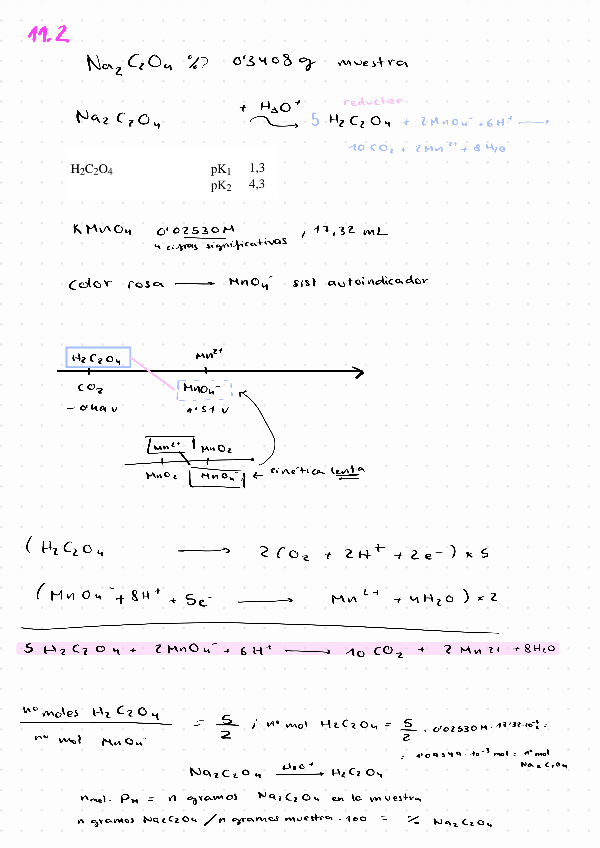 11.2
Na2C2O4 %? 0'3408 g muestra
Na2C2O4 + H3O+ 5 H2C2O4 + 2MnO4- + 6H+ →
reductor
10 CO2 + 2Mn2+ + 8H2O
H2C2O4 pK1 1,3
pK2 4,3
KMnO4 0'02530M , 17,32 mL
4 cifras significativas
Color rosa → MnO4- sist autoindicador
H2C2O4 Mn2+
CO2 MnO4-
1'51 V
Mn2+ MnO2
MnO2 MnO4- ← cinética lenta
(H2C2O4 → 2CO2 + 2H+ + 2e-) x 5
(MnO4- + 8H+ + 5e- → Mn2+ + 4H2O) x 2
5 H2C2O4 + 2MnO4- + 6H+ → 10 CO2 + 2 Mn2+ + 8H2O
nº moles H2C2O4 / nº mol MnO4- = 5/2 ; nº mol H2C2O4 = 5/2 · 0'02530M · 17'32·10-3 =
= 1'09549·10-3 mol = nº mol
Na2C2O4
Na2C2O4 H3O+ → H2C2O4
nmol · PM = n gramos Na2C2O4 en la muestra
n gramos Na2C2O4 / n gramos muestra · 100 = % Na2C2O4